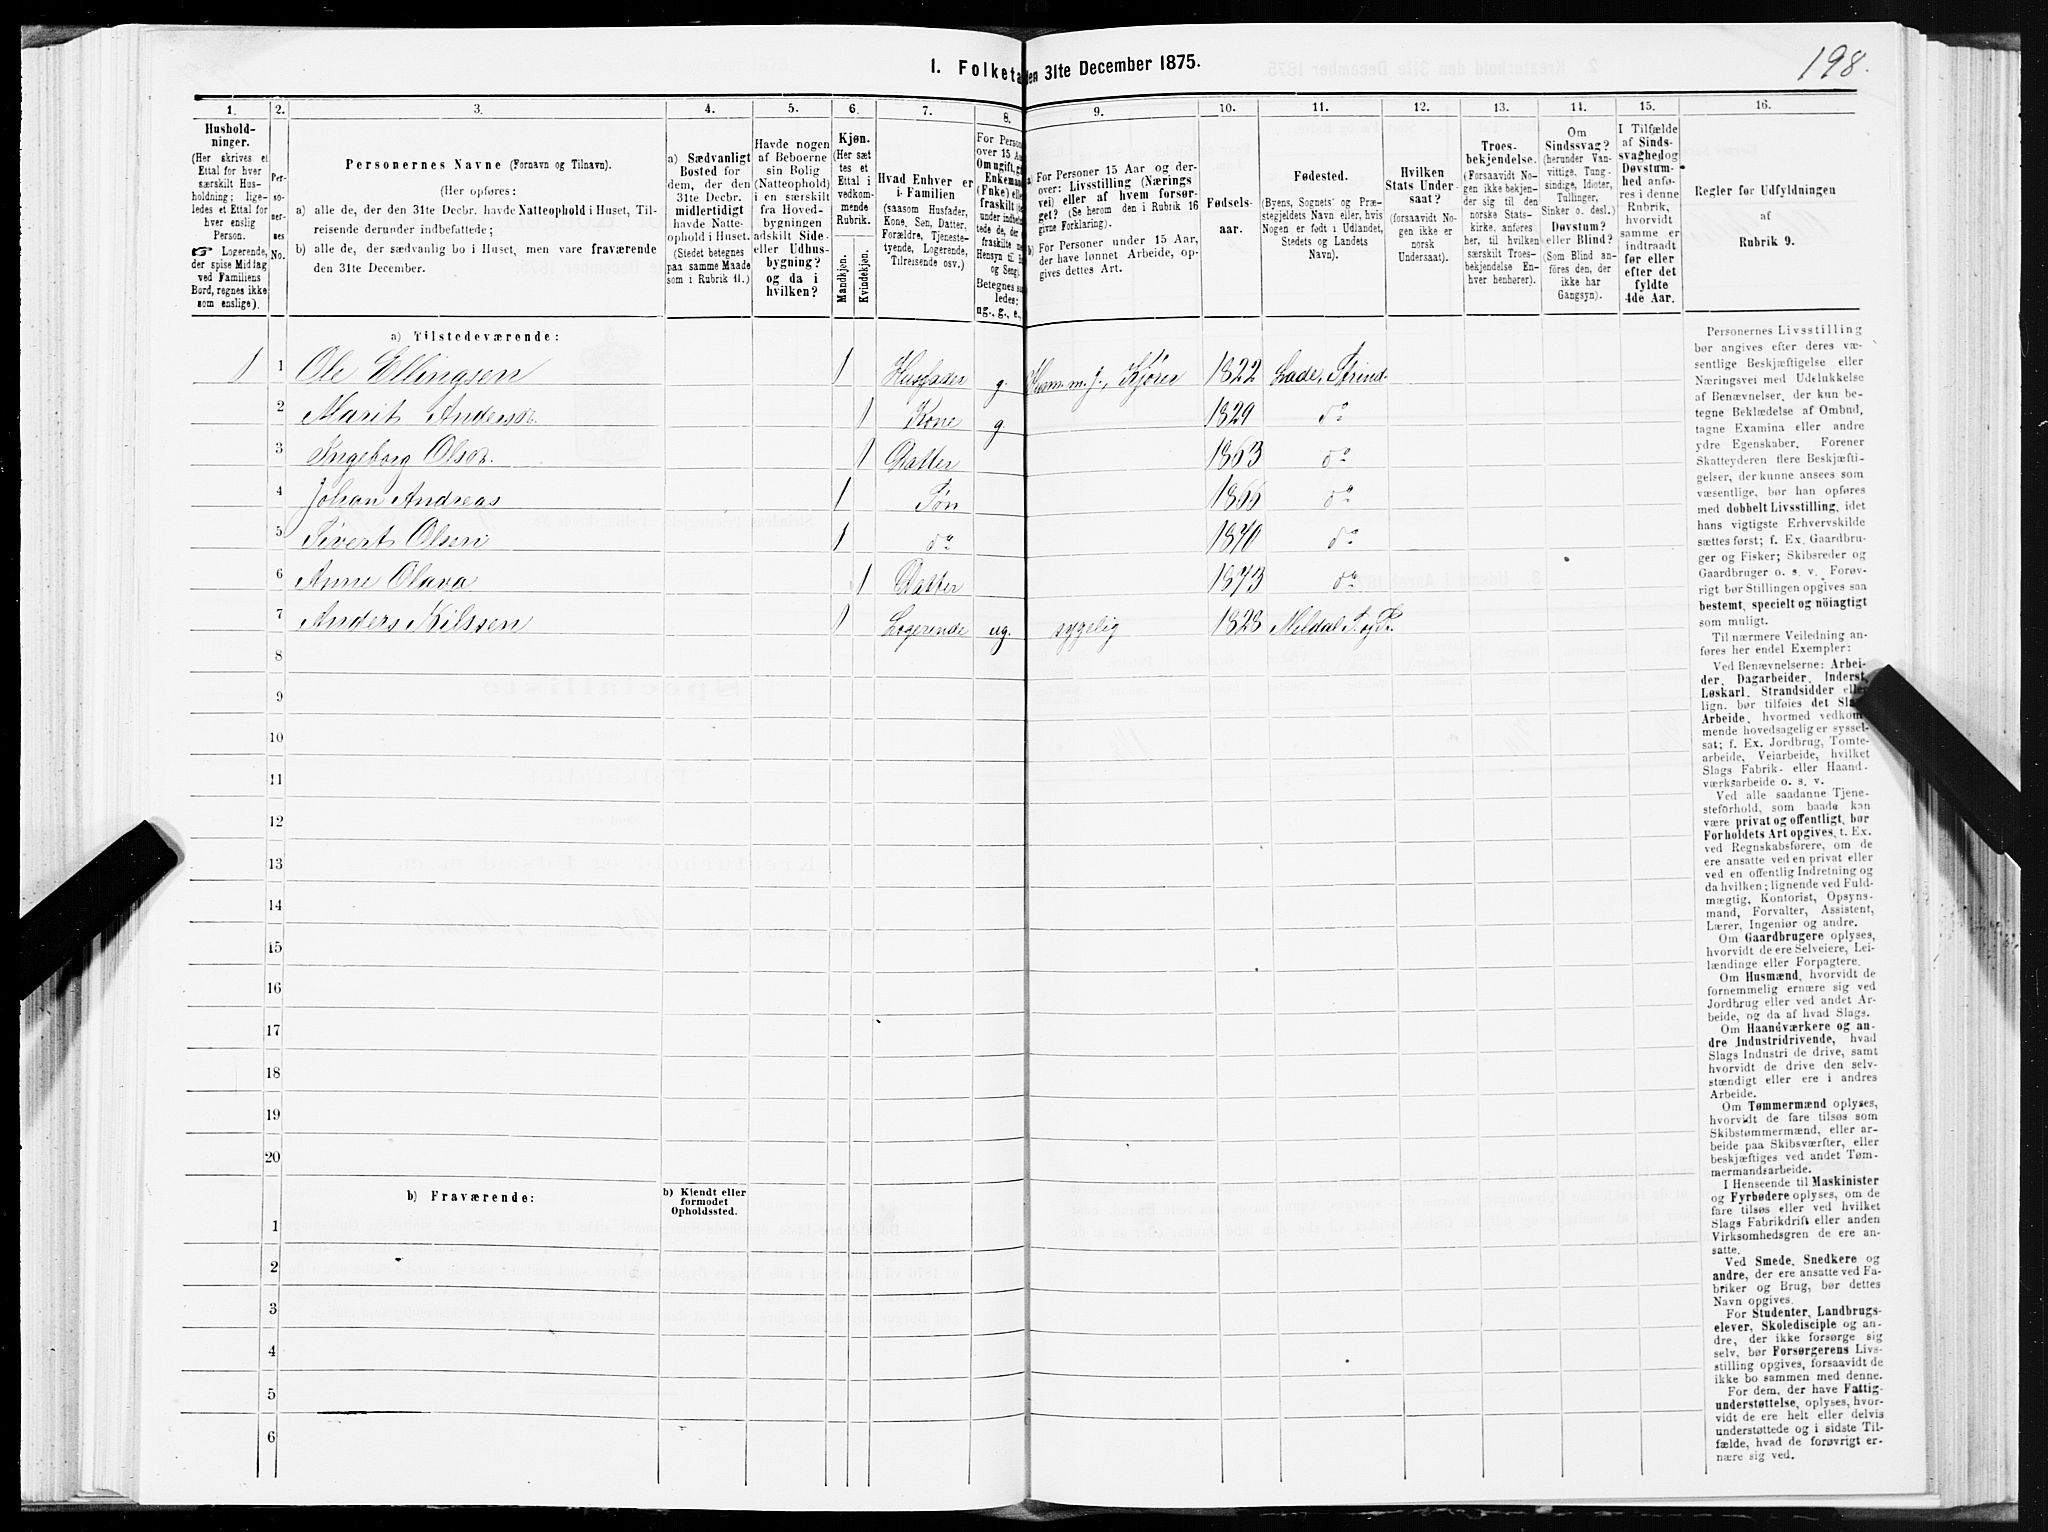 198.
1. Folketæ den 31te December 1875.
1. 2. 3. 4. 5. 6. 7. 8. 9. 10. 11. 12. 13. 14. 15. 16.
Hushold-
ninger.
(Her skrives et
Ettal for hver
særskilt Hus-
holdning; lige-
ledes et Ettal for
hver enslig
Person.
☞ Logerende,
der spise Middag
ved Familiens
Bord, regnes ikke
som enslige).
Per-
so-
ner-
nes
No.
Personernes Navne (Fornavn og Tilnavn).
(Her opføres:
a) alle de, der den 31te Decbr. havde Natteophold i Huset, Til-
reisende derunder indbefattede;
b) alle de, der sædvanlig bo i Huset, men vare fraværende
den 31te December.
a) Sædvanligt
Bosted for
dem, der den
31te Decbr.
midlertidigt
havde Natte-
ophold i Huset.
(Stedet betegnes
paa samme Maade
som i Rubrik 11.)
Havde nogen
af Beboerne
sin Bolig
(Natteophold)
i en særskilt
fra Hoved-
bygningen
adskilt Side-
eller Udhus-
bygning?
og da i
hvilken?
Kjøn.
(Her sæt
tes et
Ettal i
vedkom-
mende
Rubrik.
Mandkjøn.
Kvindekjøn.
Hvad Enhver er
i Familien
(saasom Husfader,
Kone, Søn, Datter,
Forældre, Tjeneste-
tyende, Logerende,
Tilreisende osv.)
For Person
over 15 Aa
Om ugift, g
Enkeman
(Fnke) elle
fraskilt
ng., g., e.,
a) For Personer 15 Aar og der-
over: Livsstilling (Nærings
vei) eller af hvem forsør-
get? (Se herom den i Rubrik 16
givne Forklaring).
b) For Personer under 15 Aar,
der have lønnet Arbeide, op-
gives dettes Art.
Fødsels-
aar.
Fødested.
(Byens, Sognets og Præ-
stegjeldets Navn eller, hvis
Nogen er født i Udlandet,
Stedets og Landets
Navn).
Hvilken
Stats Under-
saat?
(forsaavidt No-
gen ikke er
norsk
Undersaat).
Troes-
bekjendelse.
(Forsaavidt No-
gen ikke bekjen-
der sig til den
norske Stats-
kirke, anføres
her, til hvilken
særskilt Troes-
bekjendelse En-
hver henhører).
Om
Sindssvag?
(herunder Van-
vittige, Tung-
sindige, Idioter,
Tullinger,
Sinker o. desl.)
Døvstum?
eller Blind?
(Som Blind an-
føres den, der
ikke har
Gangsyn).
I Tilfælde
af Sinds-
svaghed og
Døvstum-
hed anfø-
res i denne
Rubrik,
hvorvidt
samme er
indtraadt
før eller
efter det
fyldte
4de Aar.
Regler for Udfyldningen
af
Rubrik 9.
a) Tilstedeværende:
1 1 Ole Ellingsen 1 Husfader g. Husm. m. J., Kjører 1822 Lade, Strind.
2 Marit Andersdr. 1 Kone g. 1829 do
3 Ingeborg Olsdr. 1 Datter 1863 do
4 Johan Andreas 1 Søn 1866 do
5 Sivert Olsen 1 do 1870 do
6 Anne Olava 1 Datter 1873 do
7 Anders Nilssen 1 Logerende ug. sygelig 1823 Meldal S. og P.
8
9
10
11
12
13
14
15
16
17
18
19
20
b) Fraværende:
b) Kjendt eller
formodet
Opholdssted.
1
2
3
4
5
6
Personernes Livsstilling
bør angives efter deres væ-
sentlige Beskjæftigelse eller
Næringsvei med Udelukkelse
af Benævnelser, der kun be-
tegne Beklædelse af Ombud,
tagne Examina eller andre
ydre Egenskaber. Forener
Skatteyderen flere Beskjæfti-
gelser, der kunne ansees som
væsentlige, bør han opføres
med dobbelt Livsstilling, idet
hans vigtigste Erhvervskilde
sættes først; f. Ex. Gaardbru-
ger og Fisker; Skibsreder og
Gaardbruger o. s. v. Forøv-
rigt bør Stillingen opgives saa
bestemt, specielt og nöiagtigt
som muligt.
Til nærmere Veiledning an-
føres her endel Exempler:
Ved Benævnelserne: Arbei-
der, Dagarbeider, Inderst,
Løskarl, Strandsidder eller
lign. bør tilføies det Slags
Arbeide, hvormed vedkom-
mende hovedsagelig er syssel-
sat; f. Ex. Jordbrug, Tomte-
arbeide, Veiarbeide, hvilket
Slags Fabrik- eller Haand-
værksarbeide o. s. v.
Ved alle saadanne Tjene-
steforhold, som baade kan
være privat og offentligt, bør
Forholdets Art opgives, t. Ex.
ved Regnskabsførere, om de
ere ansatte ved en privat eller
ved en offentlig Indretning og
da hvilken; lignende ved Fuld-
mægtig, Kontorist, Opsyns-
mand, Forvalter, Assistent,
Lærer, Ingeniør og andre.
Om Gaardbrugere oplyses,
hvorvidt de ere Selveiere, Lei-
lændinge eller Forpagtere.
Om Husmænd, hvorvidt de
fornemmelig ernære sig ved
Jordbrug eller ved andet Ar-
beide, og da af hvad Slags.
Om Haandværkere og an-
dre Industridrivende, hvad
Slags Industri de drive, samt
hvorvidt de drive den selv-
stændigt eller ere i andres
Arbeide.
Om Tømmermænd oplyses,
hvorvidt de fare tilsøs som
Skibstømmermænd, eller ar-
beide paa Skibsværfter, eller
beskjæftiges ved andet Tøm-
mermandsarbeide.
I Henseende til Maskinister
og Fyrbødere oplyses, om de
fare tilsøs eller ved hvilket
Slags Fabrikdrift eller anden
Virksomhedsgren de ere an-
satte.
Ved Smede, Snedkere og
andre, der ere ansatte ved Fa-
briker og Brug, bør dettes
Navn opgives.
For Studenter, Landbrugs-
elever, Skoledisciple og an-
dre, der ikke forsørge sig
selv, bør Forsørgerens Livs-
stilling opgives, forsaavidt de
ikke bo sammen med denne.
For dem, der have Fattig-
understøttelse, oplyses, hvor-
vidt de ere helt eller delvis
understøttede og i sidste Til-
fælde, hvad de forøvrigt er-
nære sig ved.